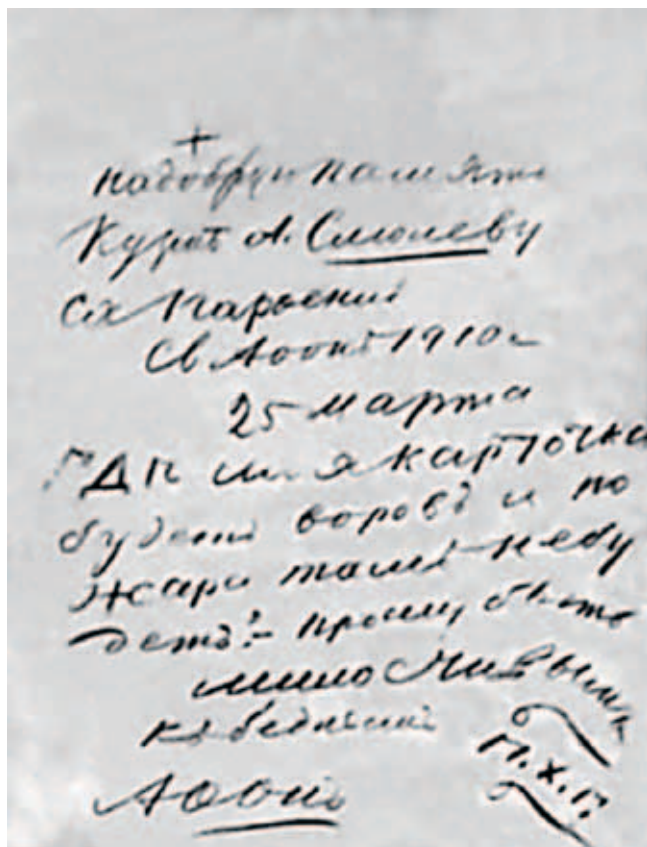 +
на добрую память
Кузмѣ А. Смолеву
Сх Парѳеній
Св Аѳонъ 1910 г
25 марта
гдѣ моя карточка
будетъ воровъ и по
жара тамъ небу
детъ! – прошу быть
милостивымъ
къ беднымъ
Аѳонъ